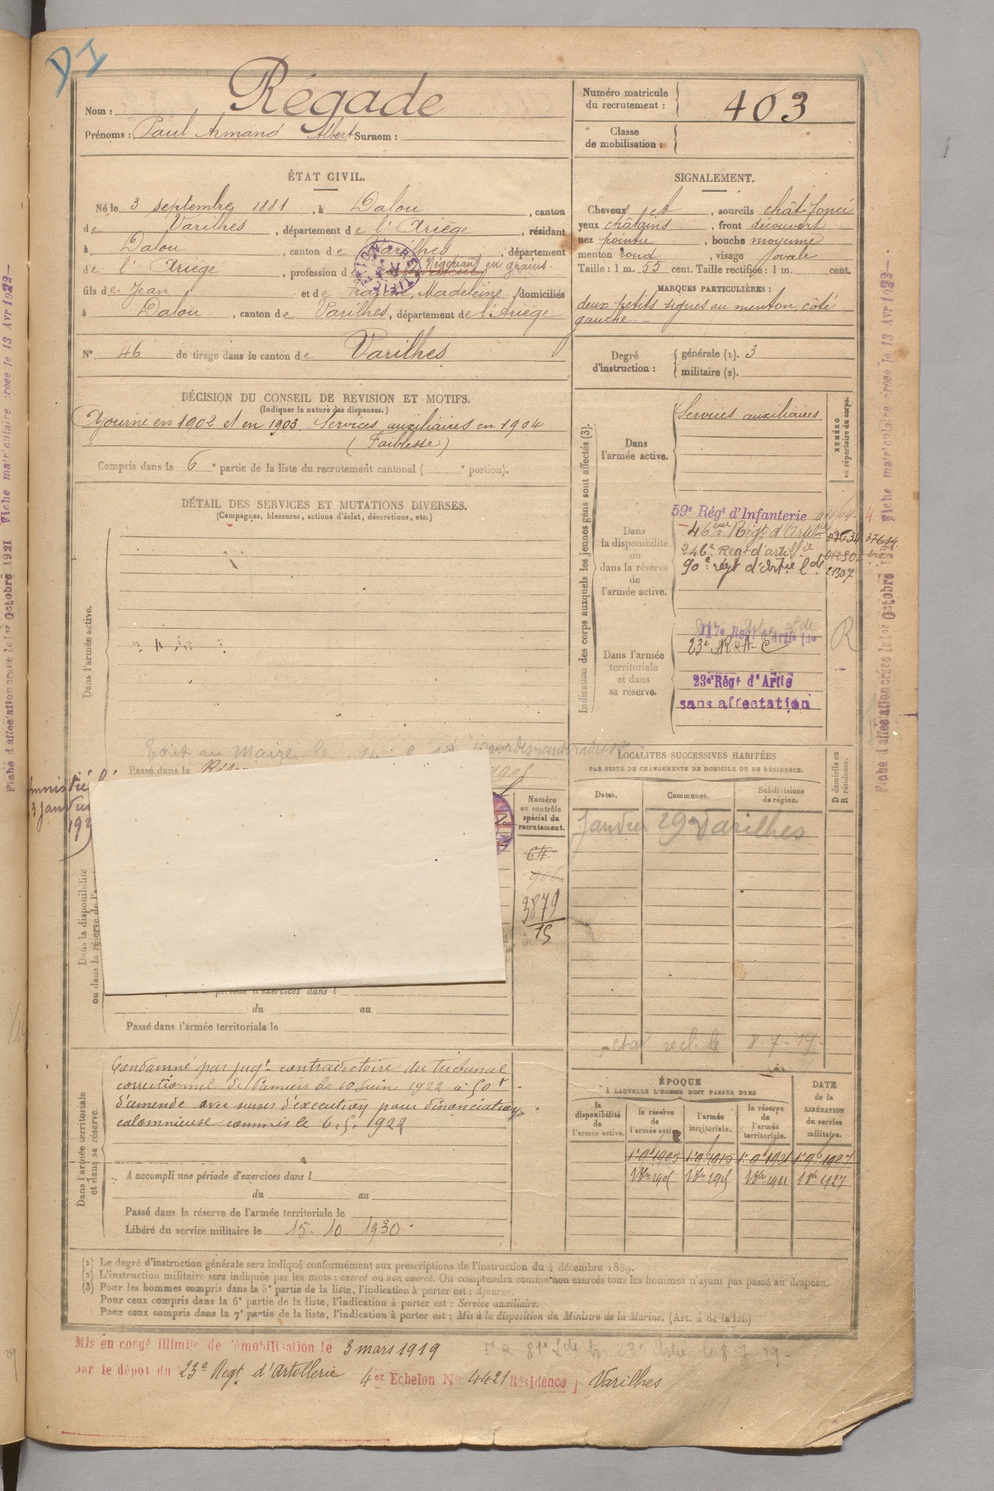 DI
Nom : Régade
Prénoms : Paul Armand Albert Surnom :
Numéro matricule du recrutement : 403
Classe de mobilisation :
ÉTAT CIVIL.
Né le 3 septembre 1881, à Dalou, canton
de Varilhes, département de l'Ariège, résidant
à Dalou, canton de Varilhes, département
de l'Ariège, profession de Négociant en grains.
fils de Jean et de Madeleine, domiciliés
à Dalou, canton de Varilhes, département de l'Ariège
N° 46 de tirage dans le canton de Varilhes
SIGNALEMENT.
Cheveux et, sourcils chât. foncé
yeux châtains, front découvert
nez pointu, bouche moyenne
menton rond, visage ovale
Taille : 1 m. 55 cent. Taille rectifiée : 1 m. cent.
MARQUES PARTICULIÈRES :
deux petits signes au menton, côté
gauche.
Degré d'instruction : générale (1). 3
militaire (2).
DÉCISION DU CONSEIL DE REVISION ET MOTIFS.
(Indiquer la nature des dispenses.)
Ajourné en 1902 et en 1903 Services auxiliaires en 1904
(Faiblesse)
Compris dans la 6e partie de la liste du recrutement cantonal ( e portion).
DÉTAIL DES SERVICES ET MUTATIONS DIVERSES.
(Campagnes, blessures, actions d'éclat, décorations, etc.)
Dans l'armée active.
Indication des corps auxquels les jeunes gens sont affectés (3).
NUMÉRO au répertoire du corps.
Dans l'armée active.
Services auxiliaires
Dans la disponibilité ou dans la réserve de l'armée active.
59e Régt d'Infanterie
46e Régt d'Artie
246e Régt d'artillie
90e régt d'Artie Lde 21307
Dans l'armée territoriale et dans sa réserve.
117e
23e R A C
23e Régt d'Artie
sans affectation
R
Fiche d'affectation créée le 1er Octobre 1921 Fiche matriculaire créée le 13 Avr 1922
Passé dans la
Numéro au contrôle spécial du recrutement.
64
906
3879
15
LOCALITÉS SUCCESSIVES HABITÉES
PAR SUITE DE CHANGEMENTS DE DOMICILE OU DE RÉSIDENCE.
Dates.
Communes.
Subdivisions de région.
D domicile ou R résidence.
Janvier 29 Varilhes
Dans la disponibilité
ou dans la réserve de l'a
du au
Passé dans l'armée territoriale le
Dans l'armée territoriale et dans sa réserve.
Condamné par jugt contradictoire du tribunal
correctionnel de Pamiers le 10 Juin 1922 à 50 f
d'amende avec sursis d'exécution pour dénonciation
calomnieuse commis le 6.5.1922
A accompli une période d'exercices dans l
du au
Passé dans la réserve de l'armée territoriale le
Libéré du service militaire le 15-10 1930
8-7-19
ÉPOQUE
À LAQUELLE L'HOMME DOIT PASSER DANS
la disponibilité de l'armée active.
la réserve de l'armée active
l'armée territoriale.
la réserve de l'armée territoriale.
DATE de la LIBÉRATION du service militaire.
1er 9 1905 1er 9 1915 1er 9 1921 1er 9 1927
(1) Le degré d'instruction générale sera indiqué conformément aux prescriptions de l'instruction du 4 décembre 1889.
(2) L'instruction militaire sera indiquée par les mots : exercé ou non exercé. On comprendra comme non exercés tous les hommes n'ayant pas passé au drapeau.
(3) Pour les hommes compris dans la 5e partie de la liste, l'indication à porter est : Ajourné.
Pour ceux compris dans la 6e partie de la liste, l'indication à porter est : Service auxiliaire.
Pour ceux compris dans la 7e partie de la liste, l'indication à porter est : Mis à la disposition du Ministre de la Marine. (Art. 4 de la loi.)
Mis en congé illimité de démobilisation le 3 mars 1919
par le dépot du 23e Régt d'Artillerie 4er Echelon N° 4421 Résidence Varilhes